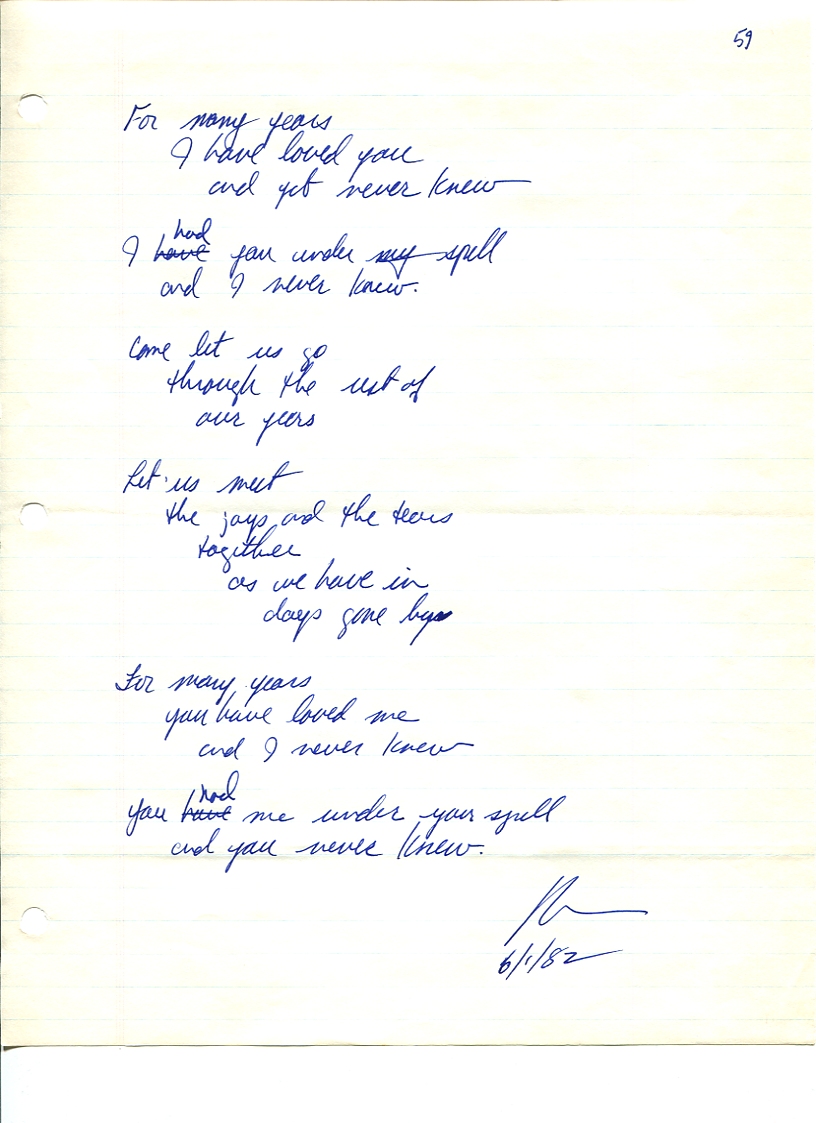 59
For many years
I have loved you
and yet never knew
had
I have you under my spell
and I never knew.
Come let us go
through the rest of
our years
Let us meet
the joys and the tears
together
as we have in
days gone by
For many years
you have loved me
and I never knew
had
you have me under your spell
and you never knew.
6/1/82